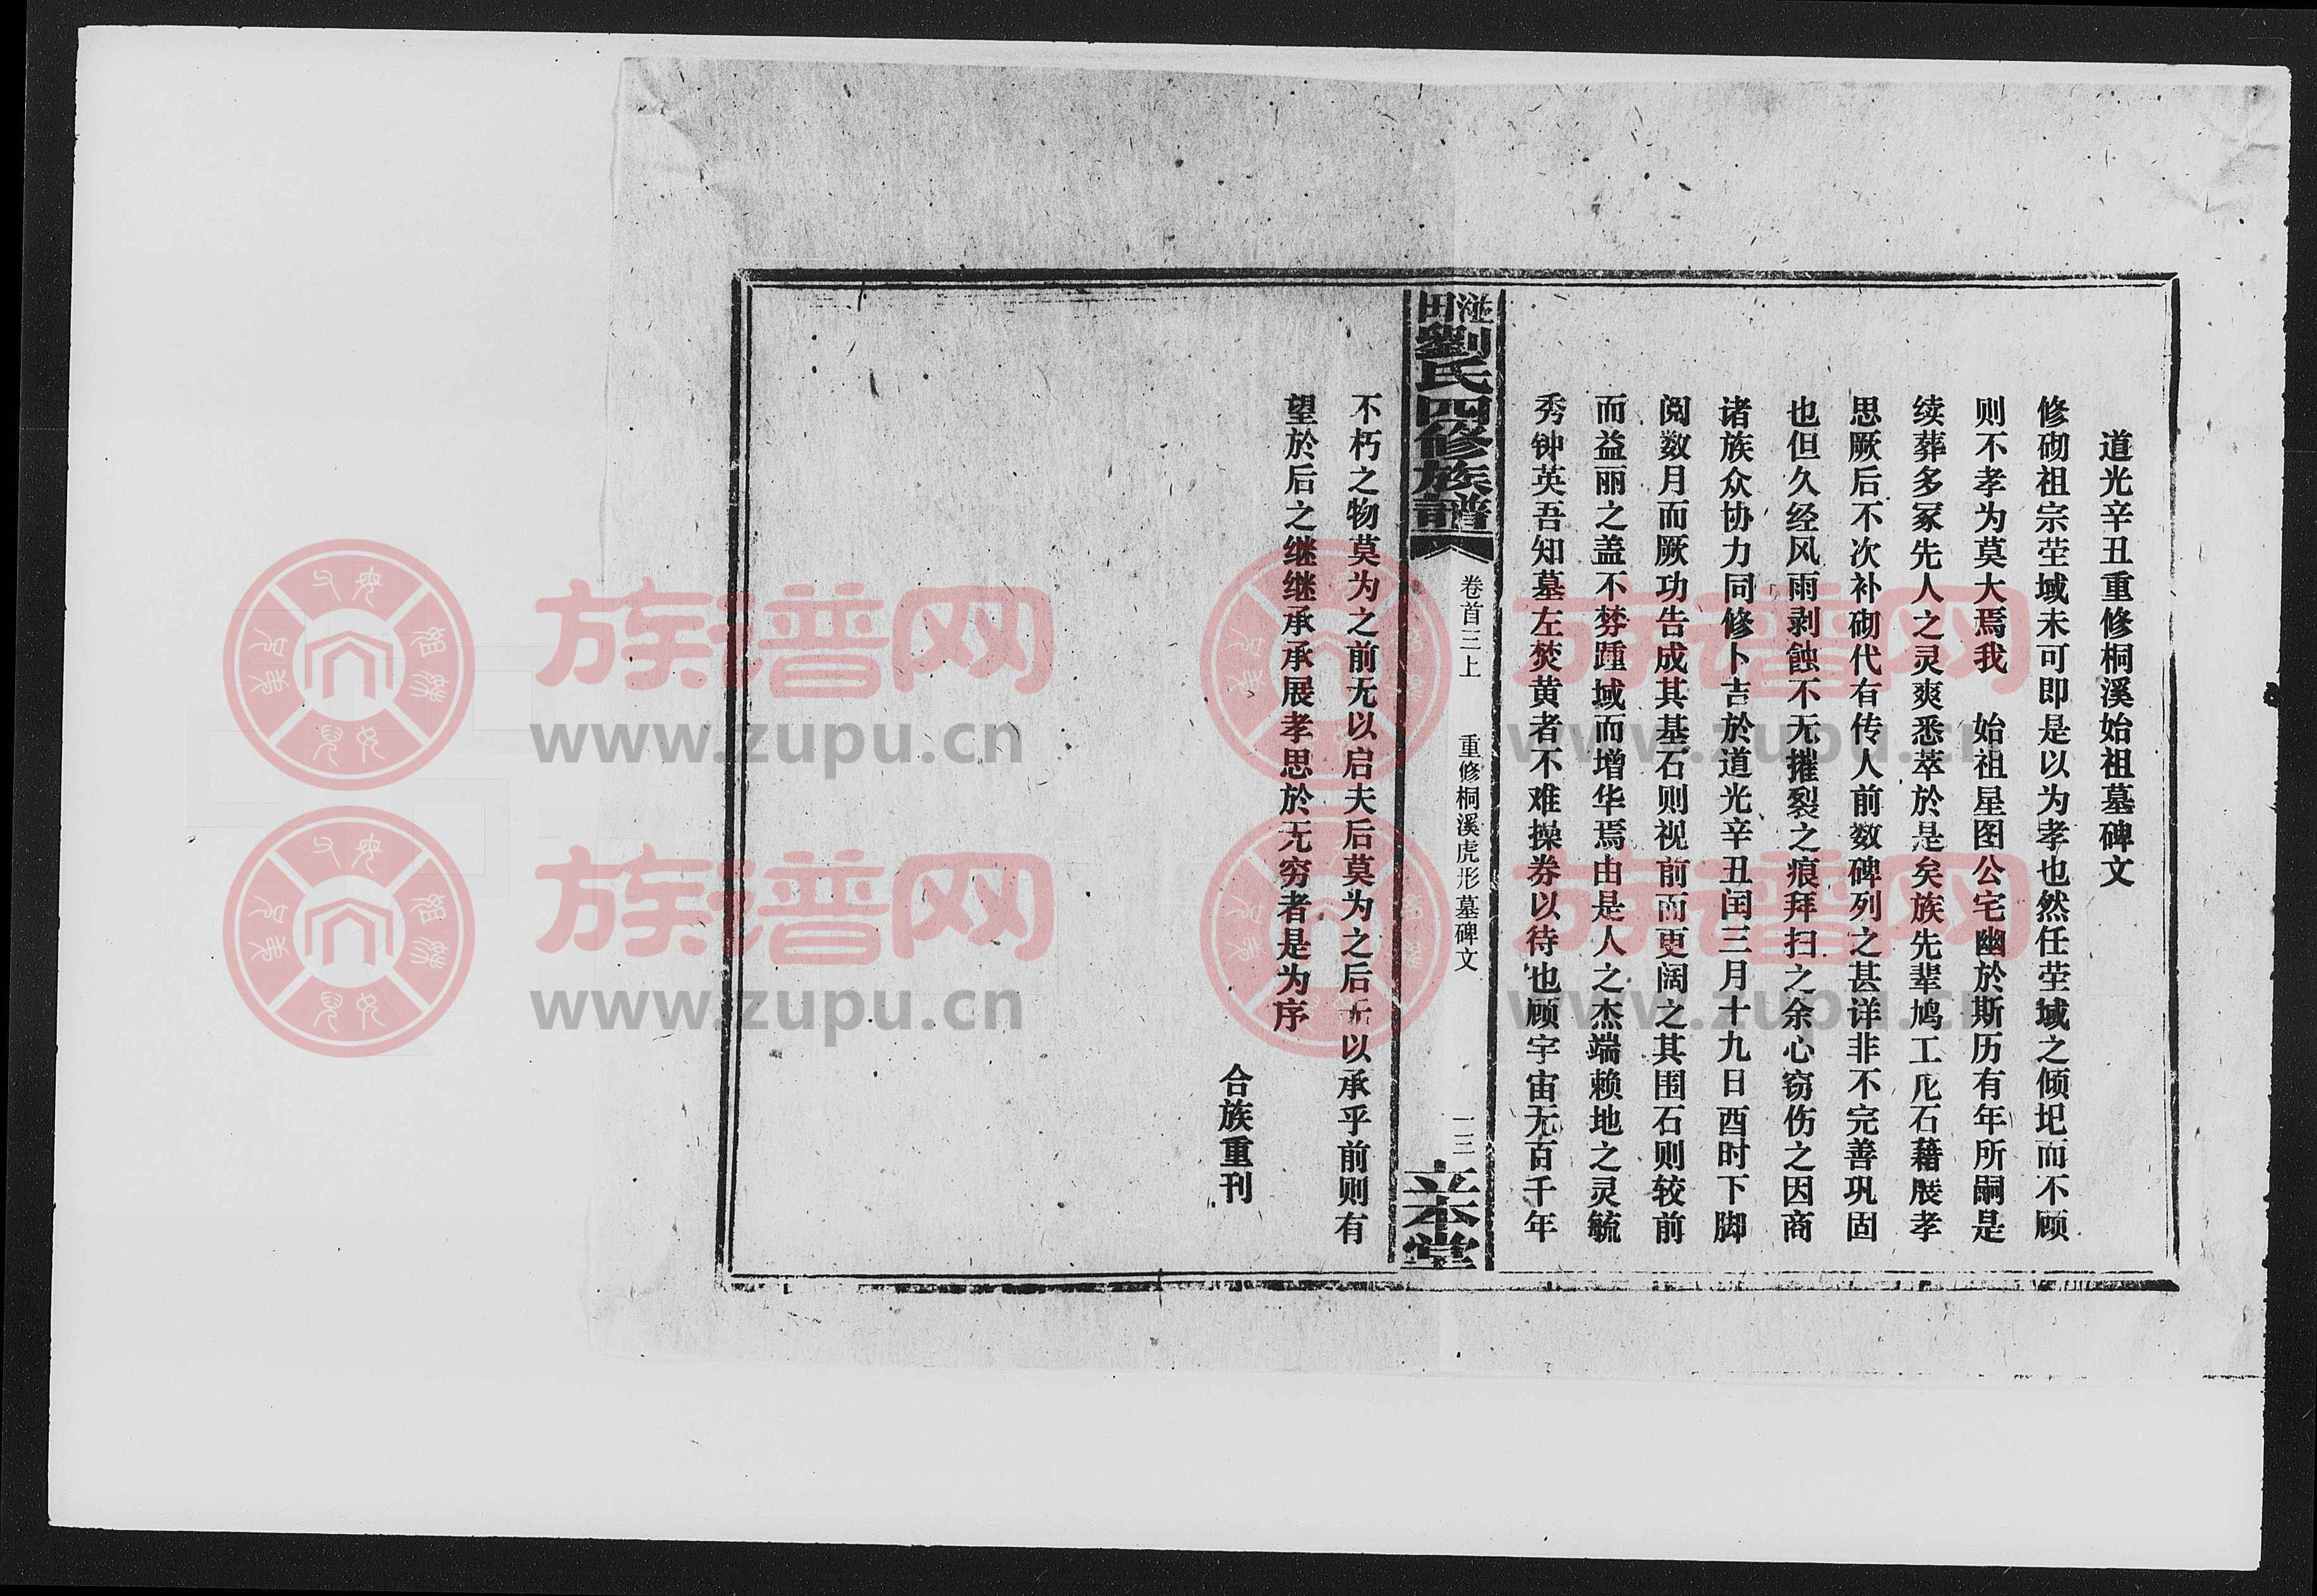 道光辛丑重修桐溪始祖墓碑文
修砌祖宗茔域未可即是以为孝也然任茔域之倾圯而不顾
则不孝为莫大焉我　始祖星图公宅幽於斯历有年所嗣是
续葬多冢先人之灵爽悉萃於是矣族先辈鸠工庀石藉展孝
思厥后不次补砌代有传人前数碑列之甚详非不完善巩固
也但久经风雨剥蚀不无摧裂之痕拜扫之余心窃伤之因商
诸族众协力同修卜吉於道光辛丑闰三月十九日酉时下脚
阅数月而厥功告成其基石则视前而更阔之其围石则较前
而益丽之盖不募踵域而增华焉由是人之杰端赖地之灵毓
秀钟英吾知墓左焚黄者不难操券以待也顾宇宙无百千年
田 刘氏四修族谱
卷首三上　重修桐溪虎形墓碑文　一三
立本堂
不朽之物莫为之前无以启夫后莫为之后无以承乎前则有
望於后之继继承承展孝思於无穷者是为序
合族重刊
族谱网
www.zupu.cn
族谱网
www.zupu.cn
族谱网
www.zupu.cn
族谱网
www.zupu.cn